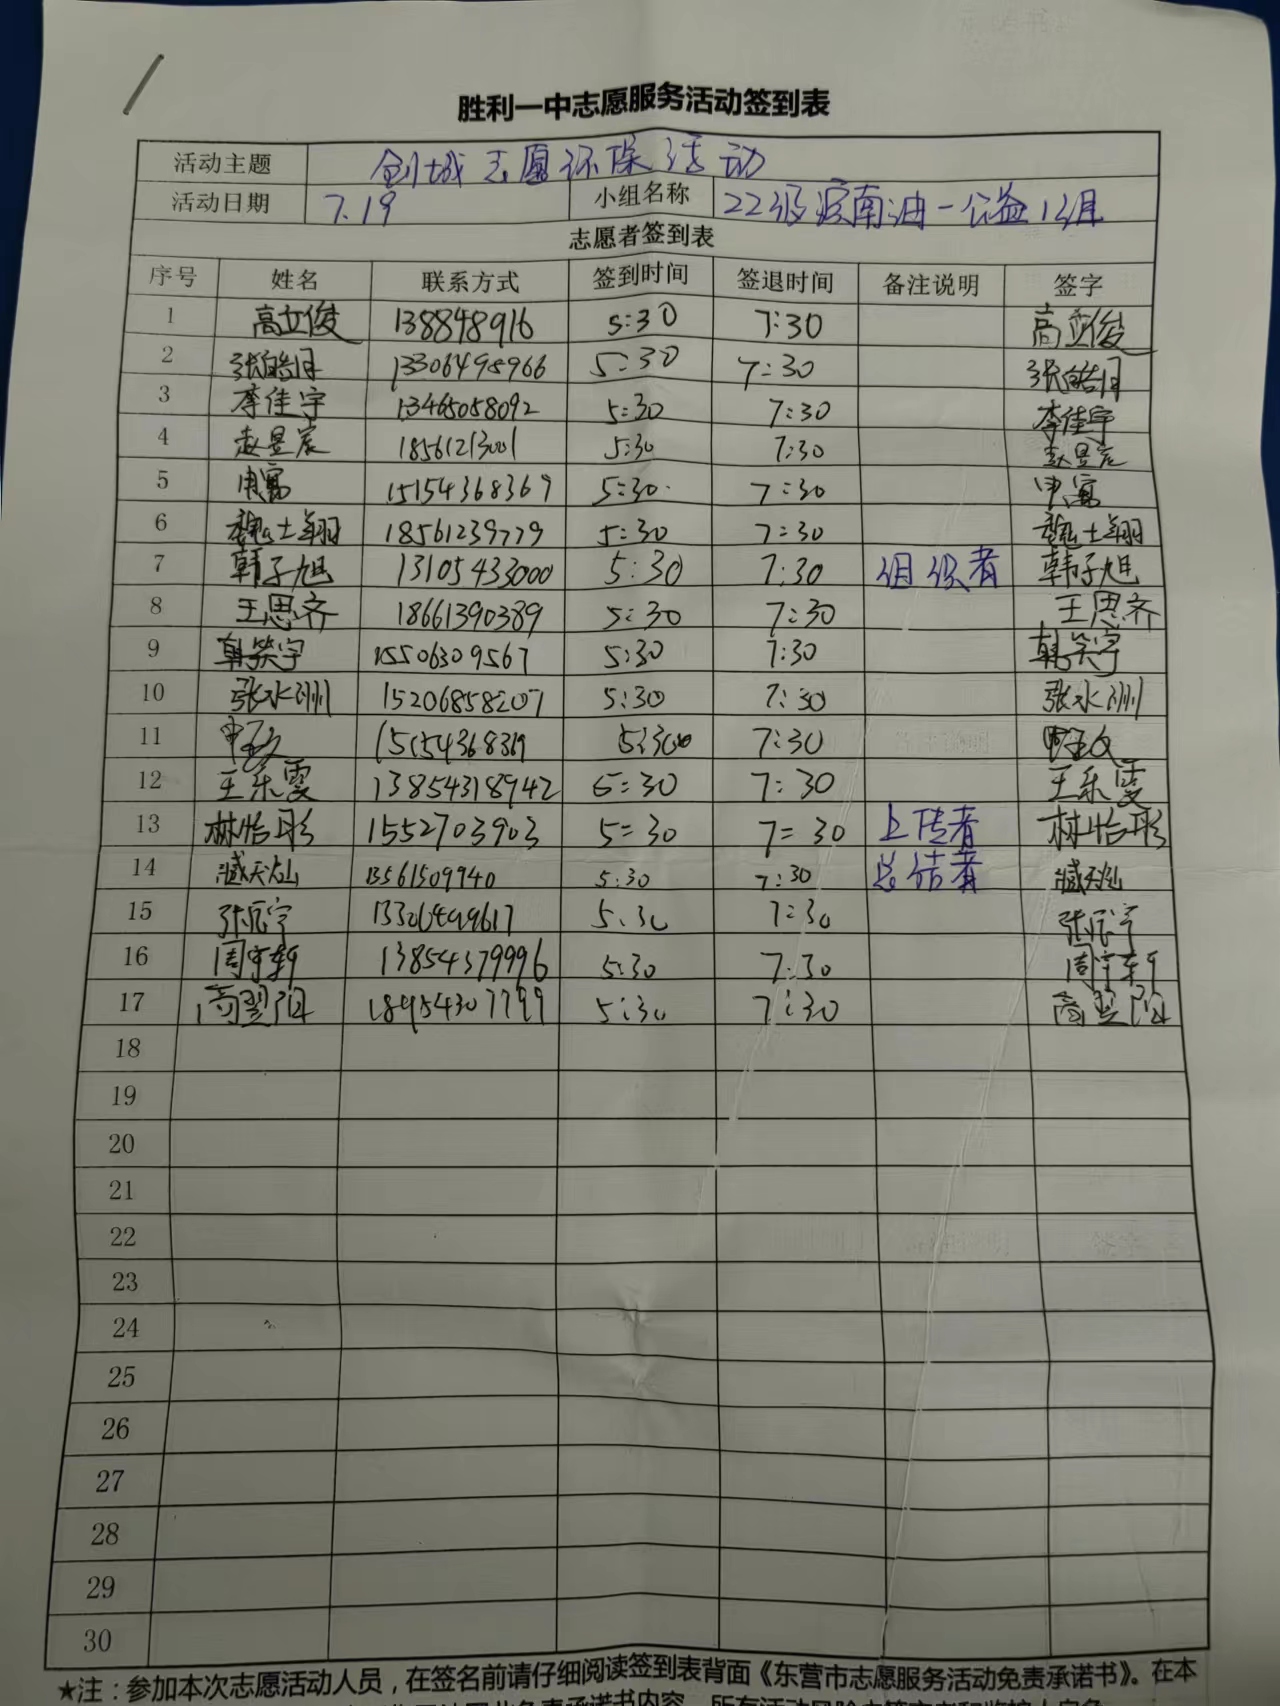 胜利一中志愿服务活动签到表
活动主题 创城志愿环保活动
活动日期 7.19 小组名称 22级滨南油一公益1组
志愿者签到表
序号 姓名 联系方式 签到时间 签退时间 备注说明 签字
1 高立俊 138848916 5:30 7:30 高立俊
2 张皓月 13306498966 5:30 7:30 张皓月
3 李佳宇 13465058092 5:30 7:30 李佳宇
4 赵昱宸 18561213001 5:30 7:30 赵昱宸
5 15154368369 5:30 7:30
6 魏士翔 18561239779 5:30 7:30 魏士翔
7 韩子旭 13105433000 5:30 7:30 组织者 韩子旭
8 王思齐 18661390389 5:30 7:30 王思齐
9 韩笑宇 15506309567 5:30 7:30 韩笑宇
10 张水洲 15206858207 5:30 7:30 张水洲
11 5:30 7:30
12 王乐雯 138854318942 5:30 7:30 王乐雯
13 林怡彤 1552703903 5:30 7:30 上传者 林怡彤
14 臧天灿 13561509940 5:30 7:30 总结者 臧天灿
15 张辰宇 5:30 7:30 张辰宇
16 周宇轩 13854379996 5:30 7:30 周宇轩
17 高翌阳 18954307799 5:30 7:30 高翌阳
18
19
20
21
22
23
24
25
26
27
28
29
30
★注：参加本次志愿活动人员，在签名前请仔细阅读签到表背面《东营市志愿服务活动免责承诺书》。在本